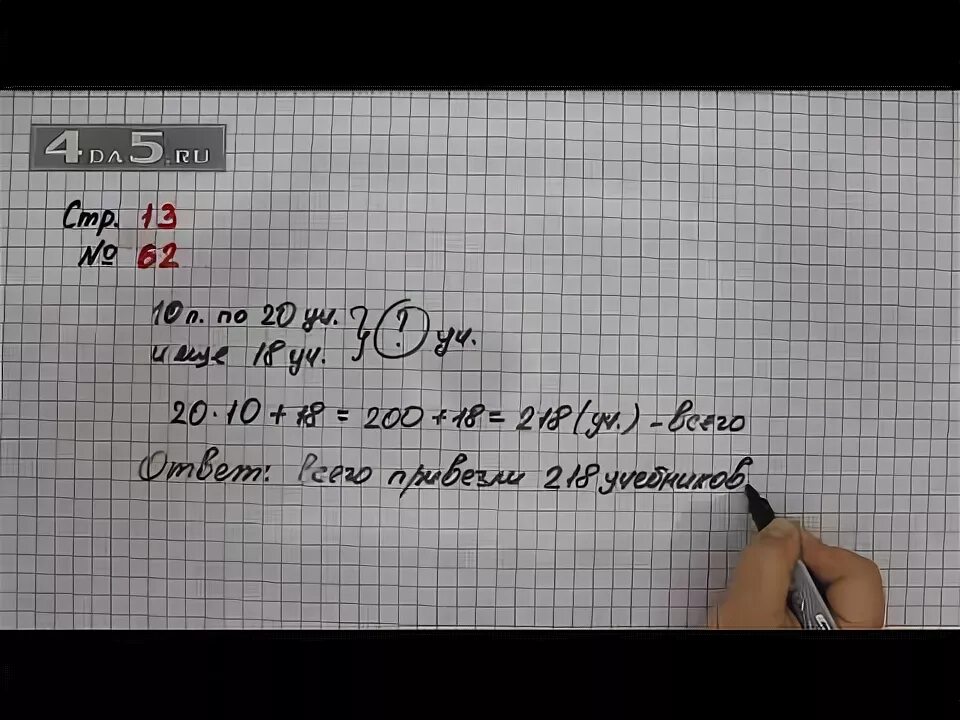 4DA5.RU
Стр. 13
№ 62
10п. по 20 уч. } ? уч.
и еще 18 уч.
20·10+18=200+18=218(уч.)-всего
Ответ: Всего привезли 218 учебников